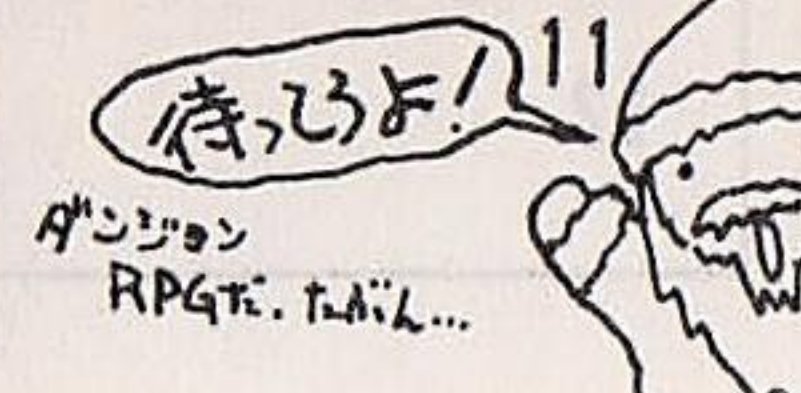 待ってろよ!
ダンジョン
RPGだ.たぶん...